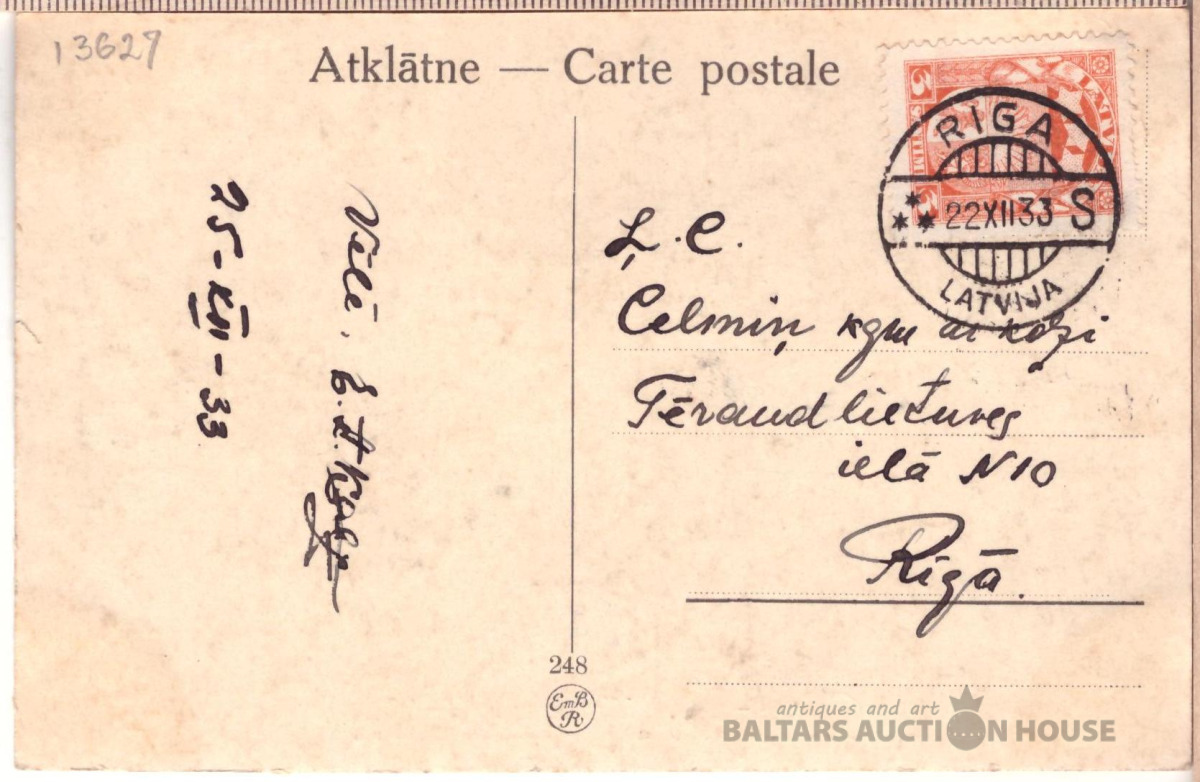 13627
Atklātne — Carte postale
3 LATV
3
RIGA
22XII33 S
LATVIJA
Ļ. C.
Celmiņ kgm ar kdzi
Tēraudlietuves
ielā N 10
Rīgā.
Vēlē. E. A.
25-XII-33
248
EmB
R
antiques and art
BALTARS AUCTION HOUSE